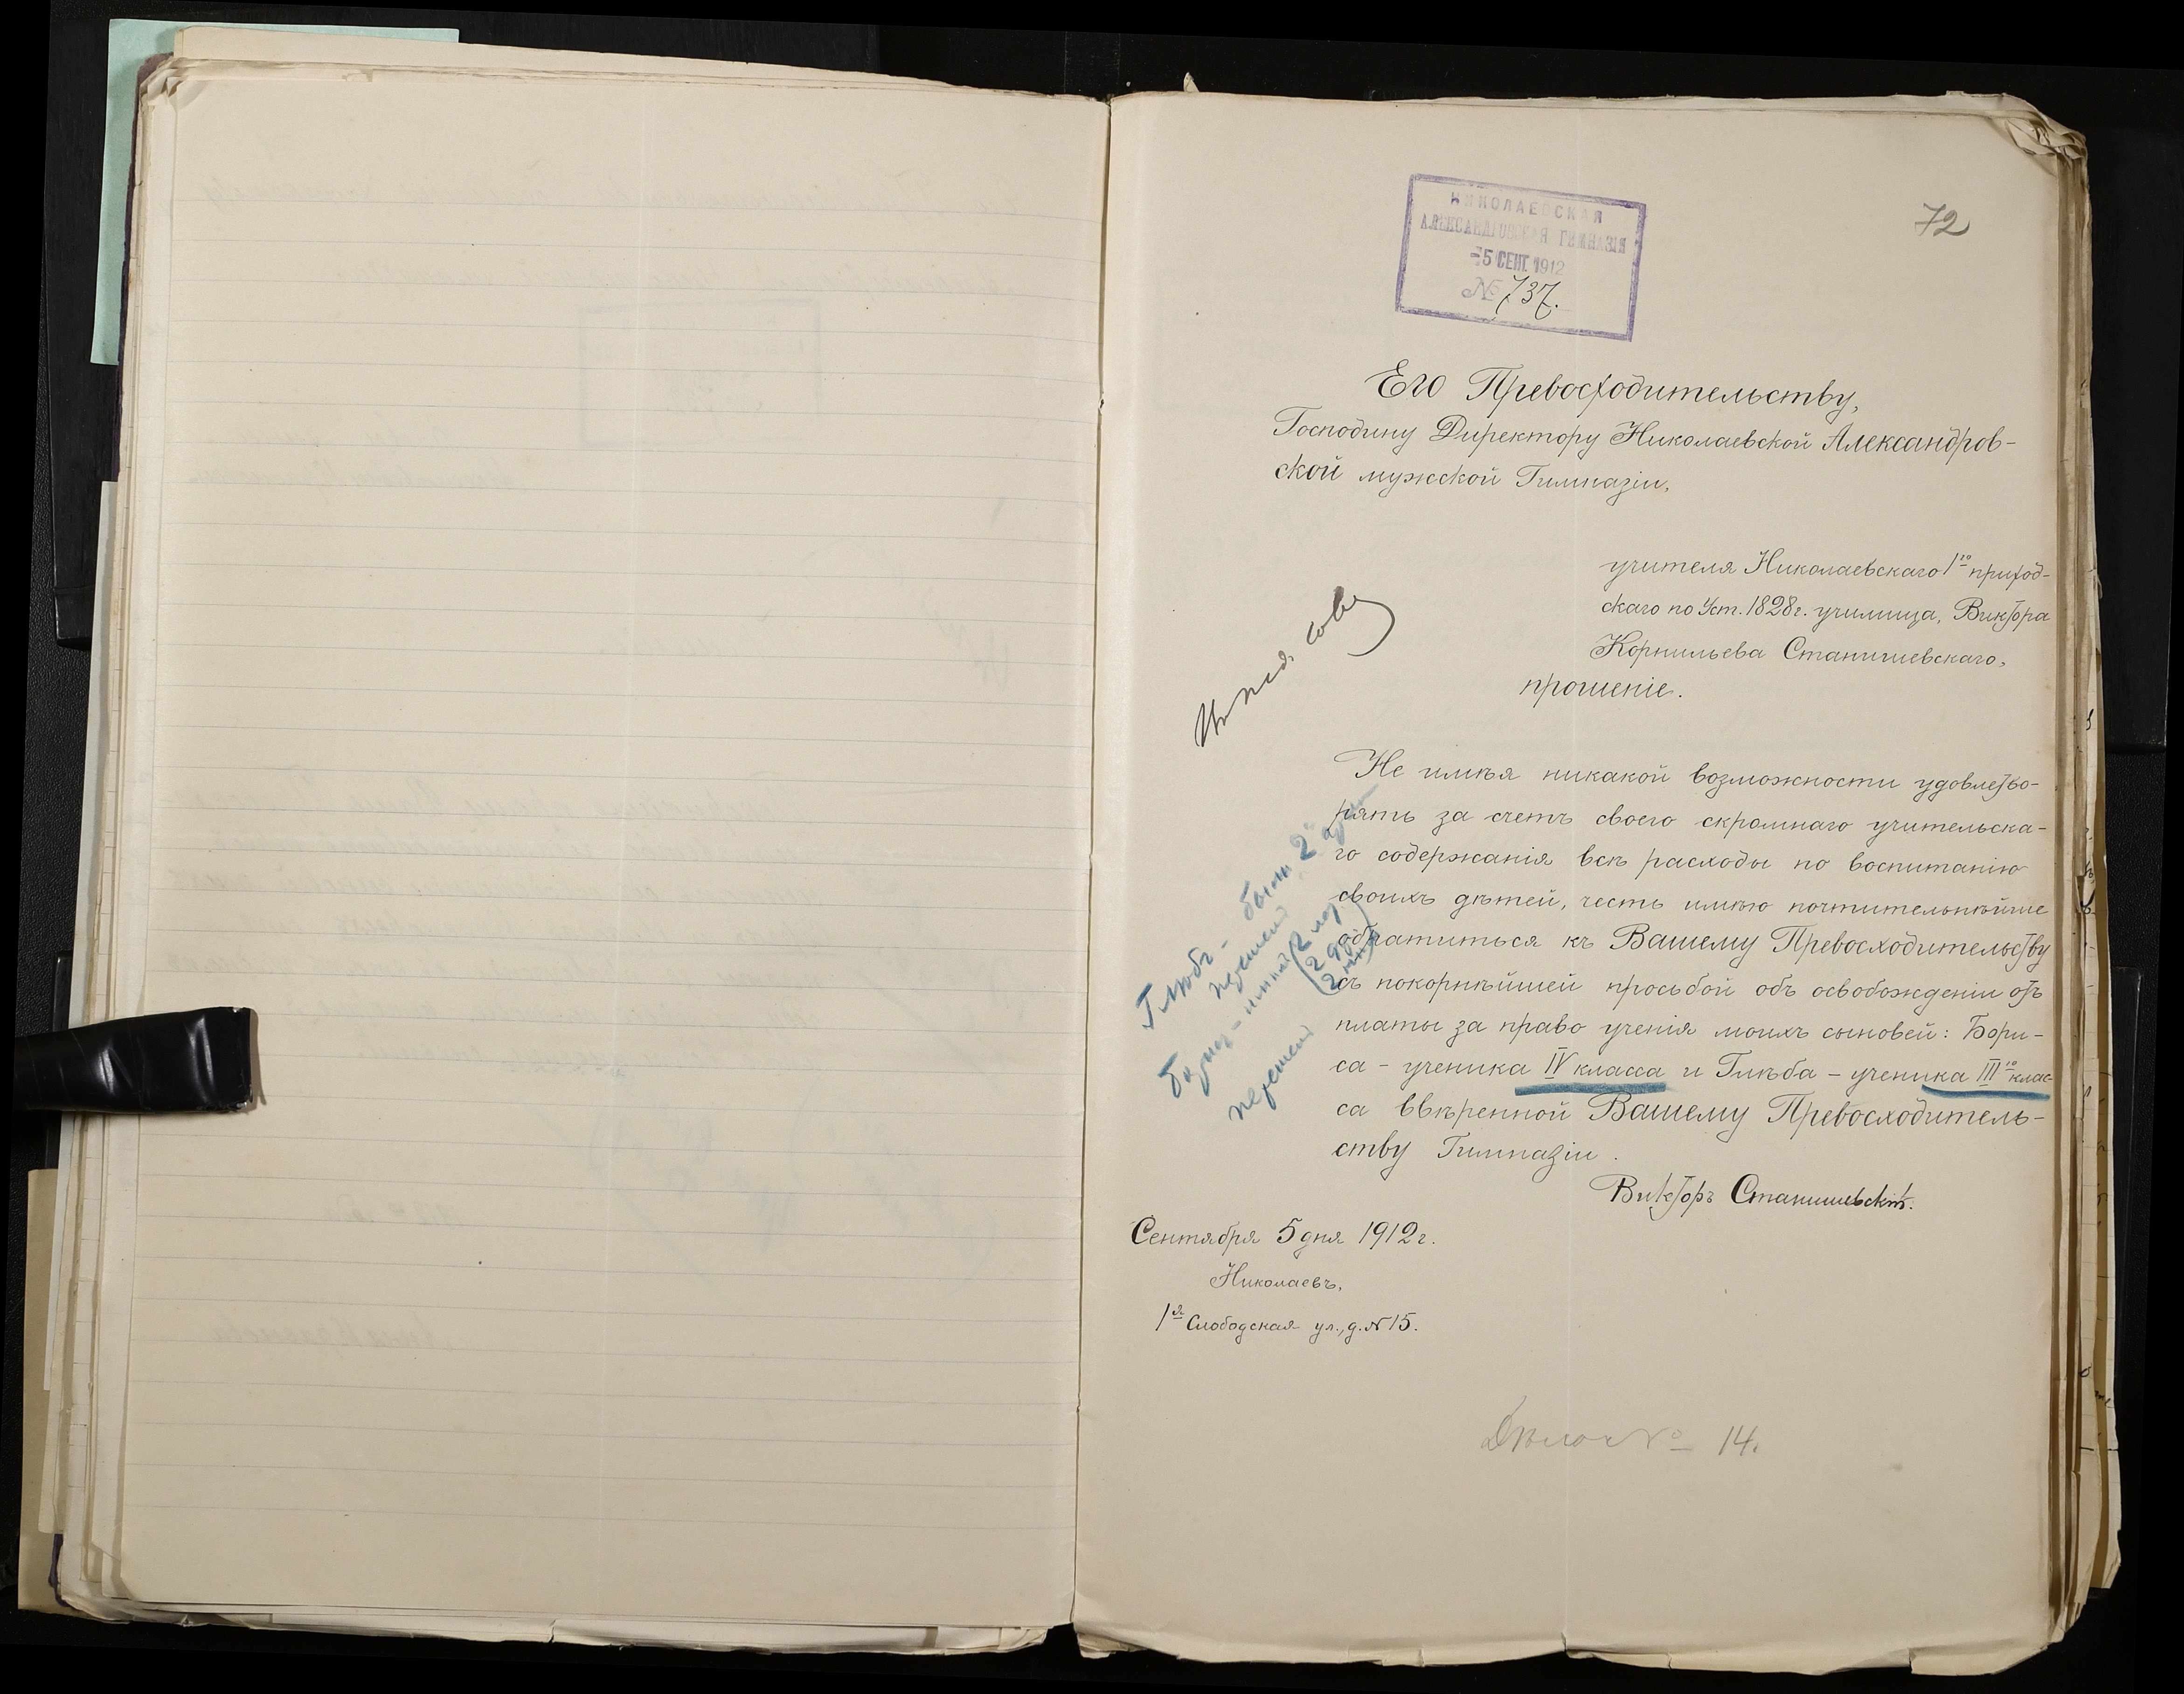 72
НИКОЛАЕВСКАЯ
АЛЕКСАНДРОВСКАЯ ГИМНАЗІЯ
-5 СЕНТ. 1912
№ 737.
Его Превосходительству,
Господину Директору Николаевской Александров-
ской мужской Гимназіи,
учителя Николаевскаго 1го приход-
скаго по Уст. 1828 г. училища, Виктора
Корнильева Станишевскаго,
прошеніе.
Не имѣя никакой возможности удовлетво-
рять за счетъ своего скромнаго учительска-
го содержанія всѣ расходы по воспитанію
своихъ дѣтей, честь имѣю почтительнѣйше
обратиться къ Вашему Превосходительству
съ покорнѣйшей просьбой объ освобожденіи отъ
платы за право ученія моихъ сыновей: Бори-
са - ученика IV класса и Глѣба - ученика III го клас-
са ввѣренной Вашему Превосходитель-
ству Гимназіи.
Викторъ Станишевскій.
Сентября 5 дня 1912 г.
Николаевъ,
1я Слободская ул., д. № 15.
Глѣбъ - были 2
Дѣло № 14.